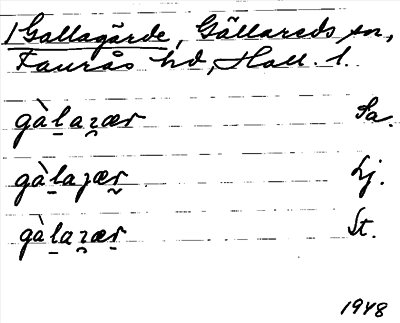 1 Gallagärde, Gällareds sn,
Faurås hd, Hall. l.
gàl̲aʐær Sa.
gàl̲aȷær̰ Lj.
gàl̲aʐær̲ St.
1948